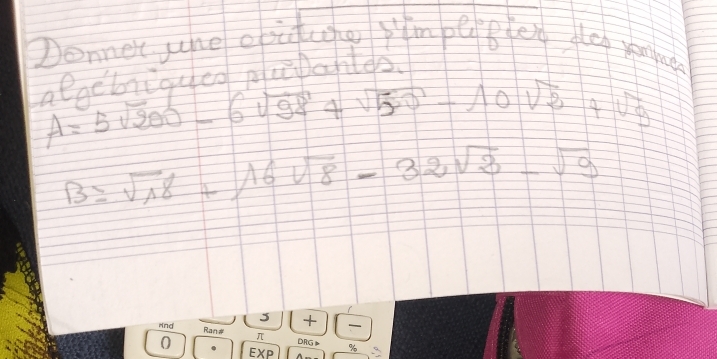 Donner une écriture simplifier des sommes
algébriques suivantes.
A = 5√200 - 6√98 + √50 - 10√2 + √
B = √18 + 16√8 - 32√2 - √9
3 + -
Rnd Ran# π DRG▸ %
0 . EXP